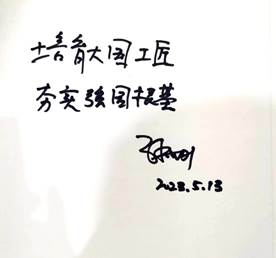 培育大国工匠
夯实强国根基
2023.5.13